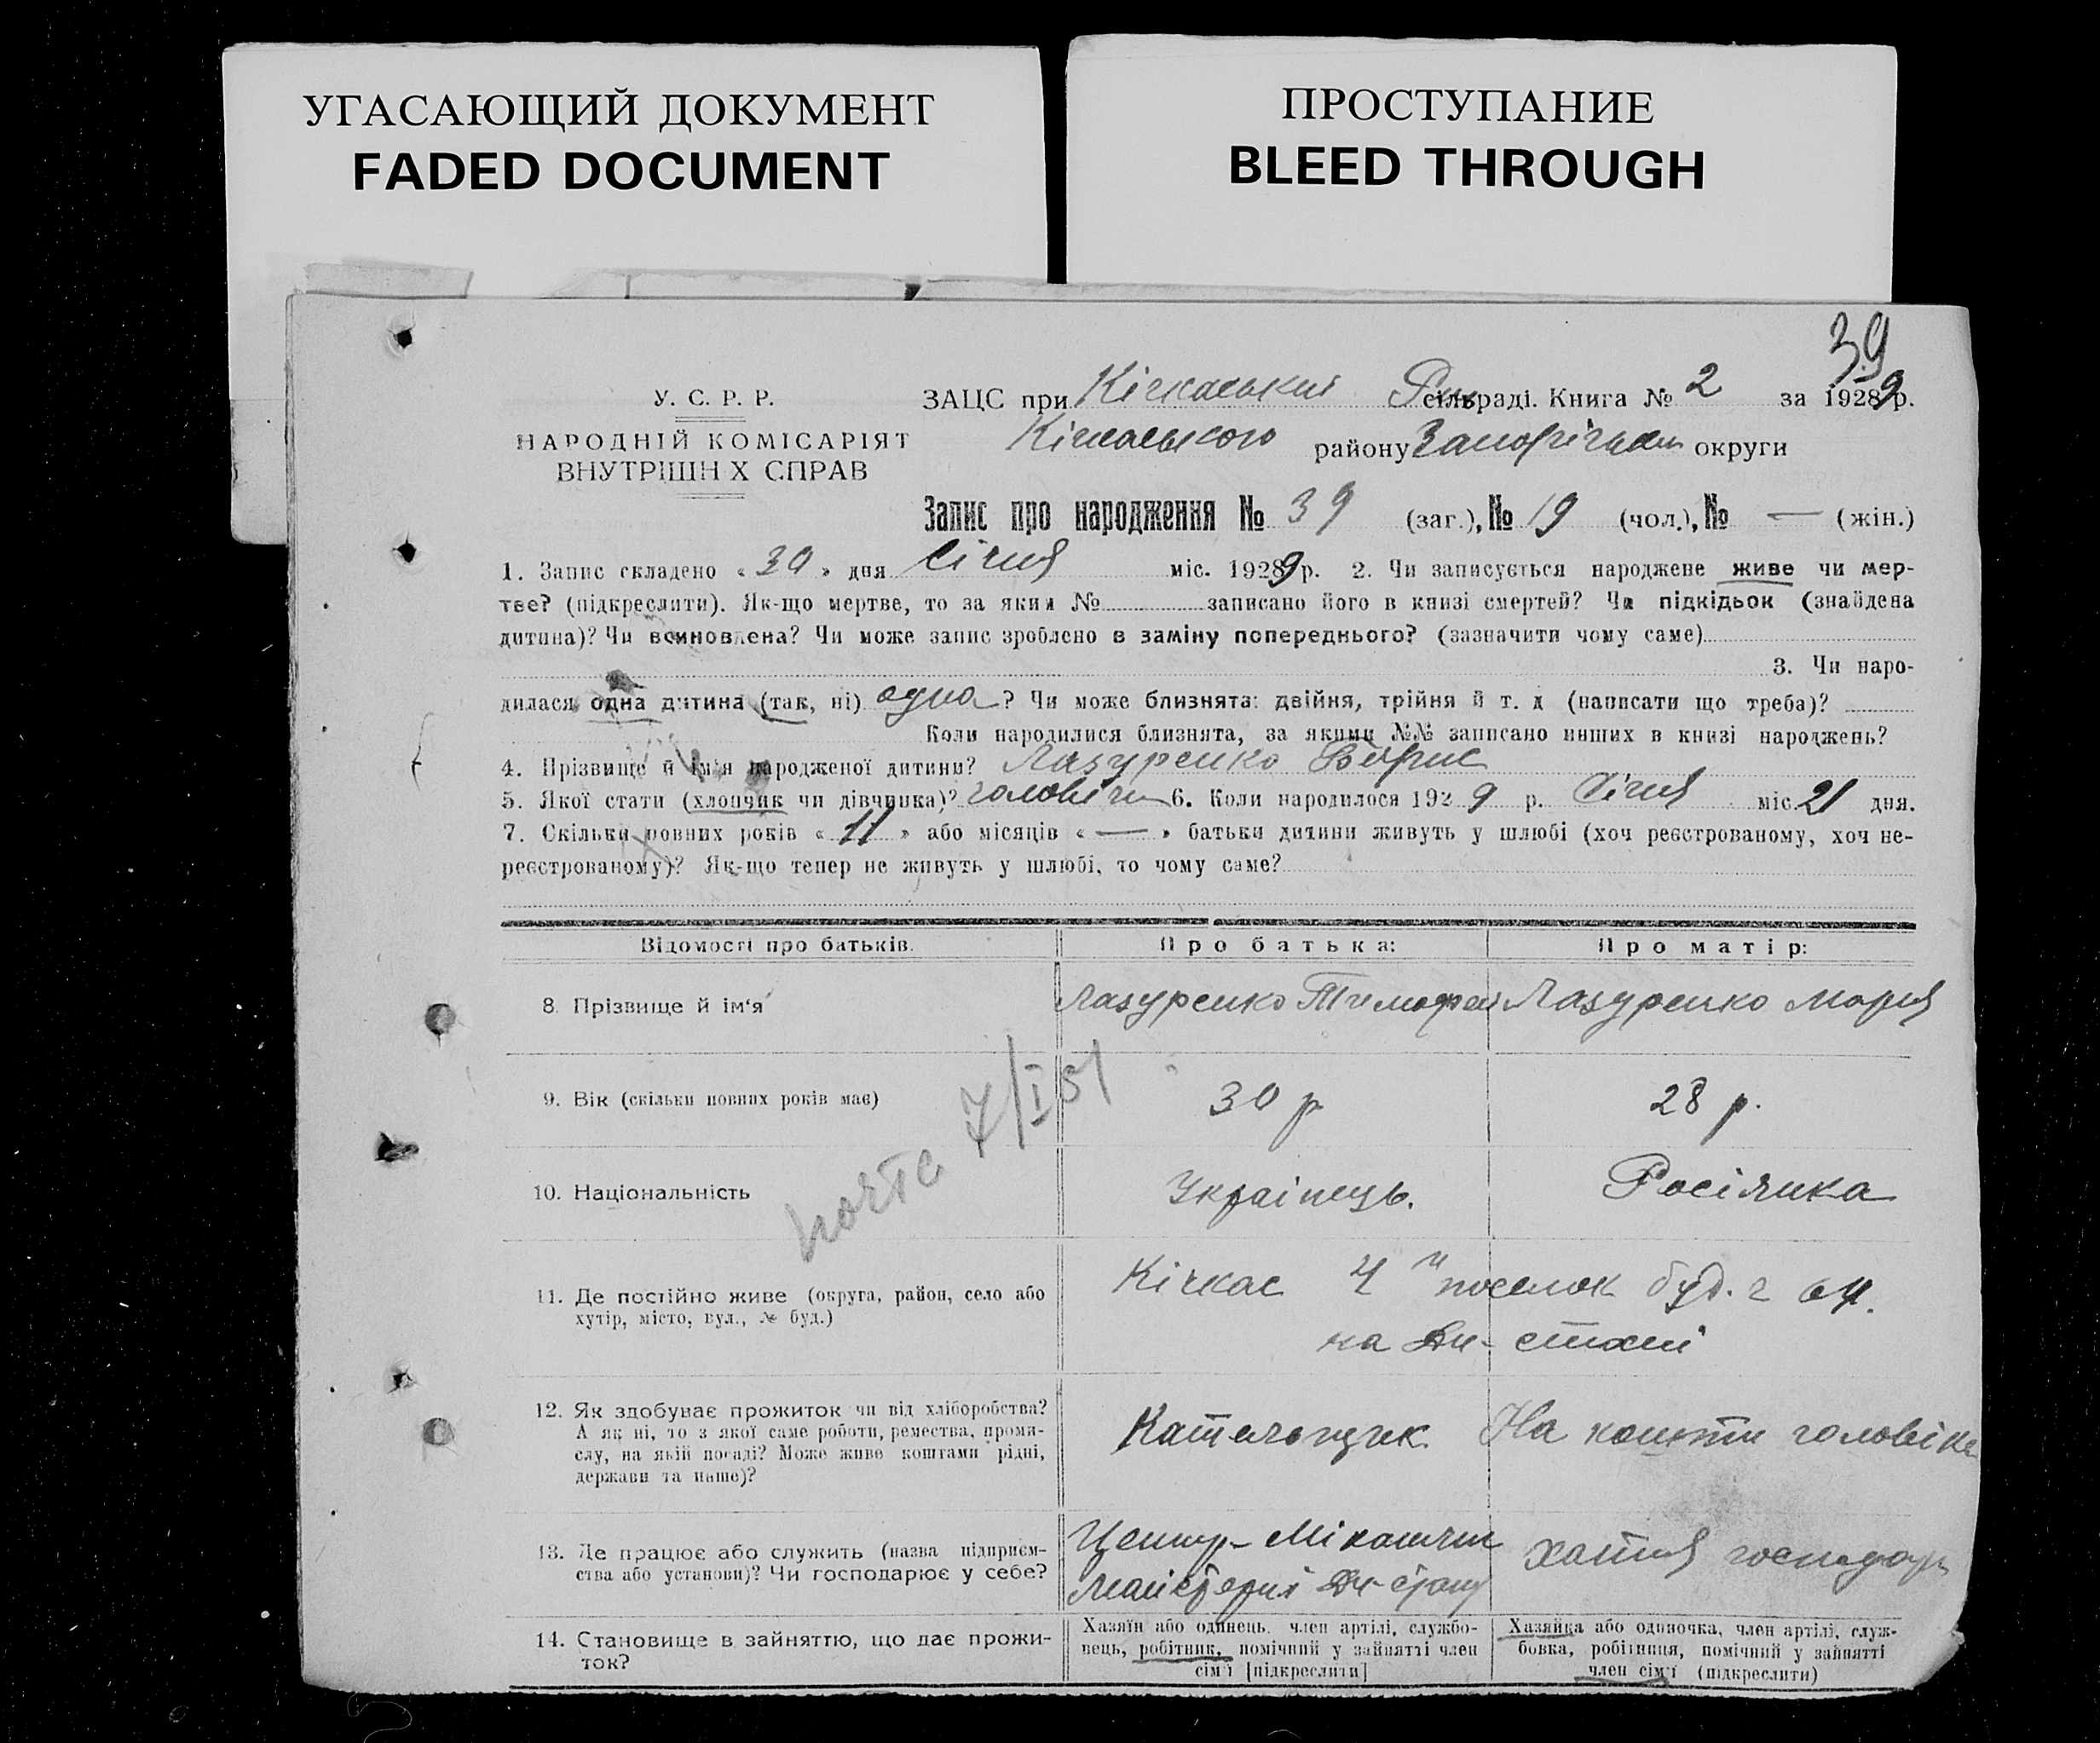 УГАСАЮЩИЙ ДОКУМЕНТ
FADED DOCUMENT
ПРОСТУПАНИЕ
BLEED THROUGH
39
У. С. Р. Р.
НАРОДНІЙ КОМІСАРІЯТ
ВНУТРІШН Х СПРАВ
ЗАЦС при Кічкаський сільраді. Книга № 2 за 1929 р.
Кічкаського району округи
Запис про народження № 39 (заг.), № 19 (чол.), № — (жін.)
1. Запис складено « 30 » дня Січня міс. 1929 р. 2. Чи записується народжене живе чи мер-
тве? (підкреслити). Як-що мертве, то за яким № записано його в книзі смертей? Чи підкідьок (знайдена
дитина)? Чи всиновлена? Чи може запис зроблено в заміну попереднього? (зазначити чому саме)
3. Чи наро-
дилася одна дитина (так, ні) одна ? Чи може близнята: двійня, трійня й т. д (написати що треба)?
Коли народилися близнята, за якими №№ записано инших в книзі народжень?
4. Прізвище й ім'я народженої дитини? Лазуренко Борис
5. Якої стати (хлопчик чи дівчинка)? 6. Коли народилося 1929 р. Січня міс 21 дня.
7. Скільки повних років « 11 » або місяців « — » батьки дитини живуть у шлюбі (хоч реєстрованому, хоч не-
реєстрованому)? Як-що тепер не живуть у шлюбі, то чому саме?
Відомості про батьків. Про батька: Про матір:
8. Прізвище й ім'я Лазуренко Тимофей Лазуренко Мария
9. Вік (скільки повних років має) 30 р 28 р.
7/I 51
10. Національність Українець. Росіянка
11. Де постійно живе (округа, район, село або
хутір, місто, вул., № буд.)
Кічкас 4 й поселок буд. 2
на
12. Як здобуває прожиток чи від хліборобства?
А як ні, то з якої саме роботи, ремества, проми-
слу, на якій посаді? Може живе коштами рідні,
держави та инше)?
Кательщик На кошти головіка
13. Де працює або служить (назва підприєм-
ства або установи)? Чи господарює у себе?
Центр-
14. Становище в зайняттю, що дає прожи-
ток?
Хазяїн або одинець. член артілі, службо-
вець, робітник, помічний у зайнятті член
сім'ї [підкреслити]
Хазяйка або одиночка, член артілі, служ-
бовка, робітниця, помічний у зайнятті
член сім'ї (підкреслити)